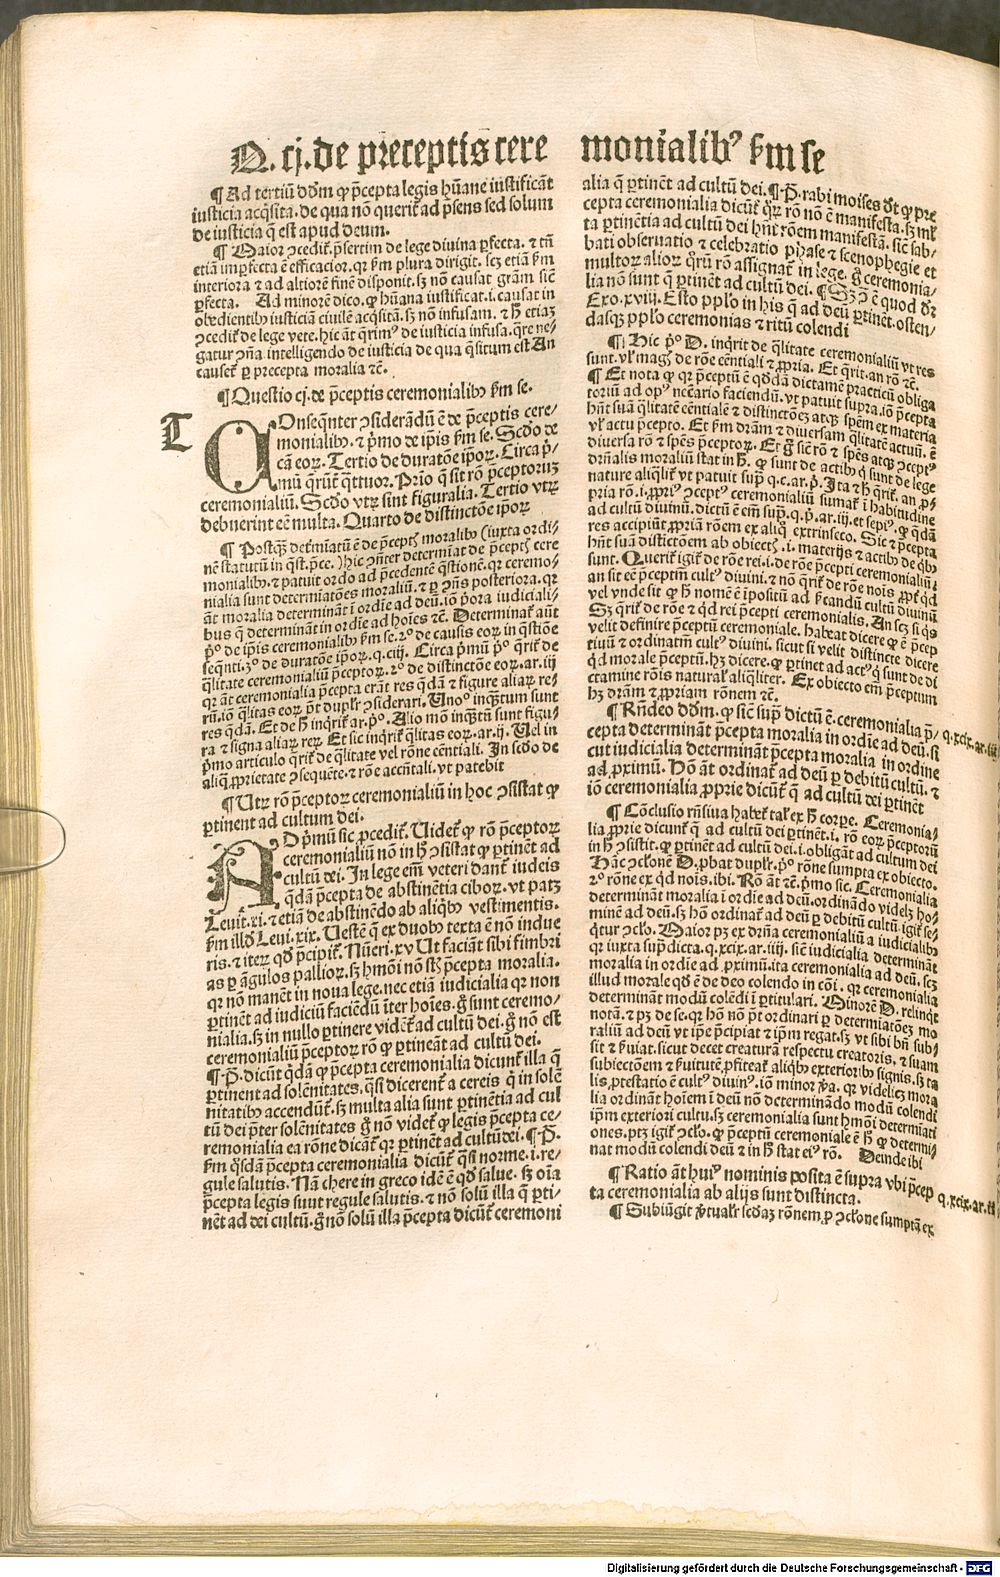 Q. cj. de p̄ceptis cere monialibꝰ ẜm se
¶ Ad tertiū dōm ꝙ p̄cepta legis hūane iustificāt
iusticia acq̄sita. de qua nō querit̄ ad p̄sens sed solum
de iusticia q̄ est apud deum.
¶ Maior ↄcedit̄. p̄sertim de lege diuina ꝑfecta. ⁊ tn̄
etiā imꝑfecta ē efficacior. qꝛ ẜm plura dirigit. scꝫ etiā ẜm
interiora ⁊ ad altiorē finē disponit. sꝫ nō causat grām sic̄
ꝑfecta. Ad minorē dico. ꝙ hūana iustificat. i. causat in
obedientibꝫ iusticiā ciuilē acq̄sitā. sꝫ nō infusam. ⁊ h̄ etiaꝫ
ↄcedit̄ de lege vete. hic āt q̄rimꝰ de iusticia infusa. qre ne⸗
gatur ↄn̄a. intelligendo de iusticia de qua q̄situm est An
causet̄ ꝑ precepta moralia ⁊c̄.
¶ Questio cj. de p̄ceptis ceremonialibꝫ ẜm se.
T
COnseq̄nter ↄsiderādū ē de p̄ceptis cere⸗
monialibꝫ. ⁊ p̄mo de ip̄is ẜm se. Scd̄o de
cā eoꝝ. Tertio de duratōe ip̄oꝝ. Circa p̄⸗
mū q̄rūt̄ q̄ttuor. Prio q̄ sit rō p̄ceptoruꝫ
ceremonialiū. Scd̄o vtꝝ sint figuralia. Tertio vtꝝ
debuerint eē multa. Quarto de distinctōe ip̄oꝝ
¶ Postqꝫ det̄mīatū ē de p̄ceptꝭ moralibꝫ (iuxta ordi⸗
nē statutū in q̄st. p̄ce.) hic ↄn̄ter determīat de p̄ceptꝭ cere
monialibꝫ. ⁊ patuit ordo ad p̄cedentē q̄stionē. qꝛ ceremo⸗
nialia sunt determīatōes moraliū. ⁊ ꝑ ↄn̄s posteriora. qꝛ
āt moralia determināt i ordīe ad deū. iō p̄ora iudiciali⸗
bus q̄ determināt in ordīe ad hoīes ⁊c̄. Determinat̄ aūt
p̄ꝰ de ip̄is ceremonialibꝫ ẜm se. 2ꝰ de causis eoꝝ in q̄stiōe
seq̄nti. 3ꝰ de duratōe ip̄oꝝ. q. ciij. Circa p̄mū p̄ꝰ q̄rit̄ de
q̄litate ceremonialiū p̄ceptoꝝ. 2ꝰ de distinctōe eoꝝ. ar. iij
qꝛ āt ceremonialia p̄cepta erāt res q̄dā ⁊ figure aliaꝝ re⸗
rū. iō q̄litas eoꝝ pōt dupl̄r ↄsiderari. Unoꝰ inq̄stum sunt
res q̄dā. Et de h̄ inq̄rit̄ ar. p̄ꝰ. Alio mō inq̄stū sunt figu⸗
ra ⁊ signa aliaꝝ reꝝ. Et sic inq̄rit̄ q̄litas eoꝝ. ar. ij. Uel in
p̄mo articulo q̄rit̄ de q̄litate vel rōne eēntiali. In scd̄o de
aliq̄ ꝓprietate ↄsequēte. ⁊ rōe accn̄tali. vt patebit
¶ Utꝝ rō p̄ceptoꝝ ceremonialiū in hoc ↄsistat ꝙ
ꝑtinent ad cultum dei.
AD p̄mū sic ꝓcedit̄. Uidet̄ ꝙ rō p̄ceptoꝝ
ceremonialiū nō in h̄ ↄsistat ꝙ ꝑtinēt ad
cultū dei. In lege em̄ veteri dant̄ iudeis
q̄dā p̄cepta de abstinētia ciboꝝ. vt patꝫ
Leuit. xi. ⁊ etiā de abstinēdo ab aliqbꝫ vestimentis.
ẜm illd̄ Leui. xix. Uestē q̄ ex duobꝫ texta ē nō indue
ris. ⁊ iteꝝ qd̄ p̄cipit̄. Nūeri. xv Ut faciāt sibi fimbri
as ꝑ āgulos pallioꝝ. sꝫ hmōi nō sūt p̄cepta moralia.
qꝛ nō manēt in noua lege. nec etiā iudicialia qꝛ non
ꝑtinēt ad iudiciū faciēdū īter hoīes. ḡ sunt ceremo⸗
nialia. sꝫ in nullo ꝑtinere vidēt̄ ad cultū dei. ḡ nō est
ceremonialiū p̄ceptoꝝ rō ꝙ ꝑtineāt ad cultū dei.
¶ P̄. dicūt q̄dā ꝙ p̄cepta ceremonialia dicunt̄ illa q̄
ꝑtinent ad solēnitates, q̄si dicerent̄ a cereis q̄ in solē
nitatibꝫ accendūt̄. sꝫ multa alia sunt ꝑtinētia ad cul
tū dei p̄ter solēnitates ḡ nō videt̄ ꝙ legis p̄cepta ce⸗
remonialia ea rōne dicāt̄ qꝛ ꝑtinēt ad cultū dei. ¶ P̄.
ẜm q̄sdā p̄cepta ceremonialia dicūt̄ q̄si norme. i. re⸗
gule salutis. Nā chere in greco idē ē qd̄ salue. sꝫ oīa
p̄cepta legis sunt regule salutis. ⁊ nō solū illa q̄ ꝑti⸗
nēt ad dei cultū. ḡ nō solū illa p̄cepta dicūt̄ ceremoni
alia q̄ ꝑtinēt ad cultū dei. ¶ P̄. rabi moises dt̄ ꝙ pre
cepta ceremonialia dicūt̄ qꝛ rō nō ē manifesta. sꝫ ml̄
ta ꝑtinētia ad cultū dei hn̄t rōem manifestā. sic̄ sab⸗
bati obseruatio ⁊ celebratio phase ⁊ scenophegie et
multoꝝ alioꝝ qꝛū rō assignat̄ in lege. ḡ ceremonia⸗
lia nō sunt q̄ ꝑtinēt ad cultū dei. ¶ Sꝫ ↄ ē quod dr̄
Exo. xviii. Esto ppl̄o in his q̄ ad deū ꝑtinēt. osten⸗
dasqꝫ ppl̄o ceremonias ⁊ ritū colendi
¶ Hic p̄ꝰ D. inq̄rit de q̄litate ceremonialiū vt res
sunt. vl̄ magꝭ de rōe eēntiali ⁊ ꝓpria. Et q̄rit. an rō ⁊c̄.
¶ Et nota ꝙ qꝛ p̄ceptū ē qd̄dā dictamē practicū obliga
toriū ad opꝰ necario faciendū. vt patuit supra. iō p̄cepta
hn̄t suā q̄litatē eēntialē ⁊ distinctōeꝫ atqꝫ spēm ex materia
vl̄ actu p̄cepto. Et ẜm dr̄am ⁊ diuersam q̄litatē actuū. ē
diuersa rō ⁊ spēs p̄ceptoꝝ. Et ḡ sic̄ rō ⁊ spēs atqꝫ ↄceptꝰ
dr̄nālis moraliū stat in h̄. ꝙ sunt de actibꝫ q̄ sunt de lege
nature aliq̄lit̄ vt patuit supͣ. q. c. ar. p̄. Ita ⁊ h̄ q̄rit̄. an ꝓ⸗
pria rō. i. ꝓpriꝰ ↄceptꝰ ceremonialiū sumat̄ i habitudine
ad cultū diuinū. dictū ē em̄ supͣ. q. p̄. ar. iij. et sepiꝰ. ꝙ q̄dā
res accipiūt ꝓpriā rōem ex aliq̄ extrinseco. Sic ⁊ p̄cepta
hn̄t suā distinctōem ab obiectꝭ. i. materijs ⁊ actibꝫ de qbꝫ
sunt. Querit̄ igit̄ de rōe rei. i. de rōe p̄cepti ceremonialiū.
an sit eē p̄ceptiū cultꝰ diuini. ⁊ nō q̄rit̄ de rōe nois ꝓpt̄ qd̄
vel vnde sit ꝙ h̄ nomē ē īpositū ad ẜcandū cultū diuinū
Sꝫ q̄rit̄ de rōe ⁊ qd̄ rei p̄cepti ceremonialis. An scꝫ si q̄s
velit definire p̄ceptū ceremoniale. habeat dicere ꝙ ē p̄cep
tiuū ⁊ ordinatiuū cultꝰ diuini. sicut si velit distincte dicere
qd̄ morale p̄ceptū. hꝫ dicere. ꝙ ꝑtinet ad actꝰ q̄ sunt de di
ctamine rōis naturaꝉ aliq̄liter. Ex obiecto em̄ p̄ceptum
hꝫ dr̄am ⁊ ꝓpriam rōnem ⁊c̄.
¶ Rn̄deo dōm. ꝙ sic̄ supͣ dictū ē. ceremonialia p̄⸗ q. xcix. ar. iiij
cepta determināt p̄cepta moralia in ordīe ad deū. si
cut iudicialia determināt p̄cepta moralia in ordine
ad ꝓximū. Hō āt ordinat̄ ad deū ꝑ debitū cultū. ⁊
iō ceremonialia ꝓprie dicūt̄ q̄ ad cultū dei ꝑtinēt
¶ Cōclusio rn̄siua habet̄ taꝉ ex h̄ corꝑe. Ceremonia⸗
lia ꝓprie dicunt̄ q̄ ad cultū dei ꝑtinēt. i. rō eoꝝ p̄ceptorū
in h̄ ↄsistit. ꝙ ꝑtinēt ad cultū dei. i. obligāt ad cultum dei
Hāc ↄclōnē D. ꝓbat dupl̄r. p̄ꝰ rōne sumpta ex obiecto.
2ꝰ rōne ex qd̄ nois. ibi. Rō āt ⁊c̄. p̄mo sic. Ceremonialia
determināt moralia i ordīe ad deū. ordinādo videlꝫ ho⸗
minē ad deū. sꝫ hō ordinat̄ ad deū ꝑ debitū cultū. igit̄ se⸗
q̄tur ↄclō. Maior pꝫ ex dr̄na ceremonialiū a iudicialibꝫ
qꝛ iuxta supͣdicta. q. xcix. ar. iiij. sic̄ iudicialia determināt
moralia in ordīe ad ꝓximū. ita ceremonialia ad deū. scꝫ
illud morale qd̄ ē de deo colendo in cōi. qꝛ ceremonialia
determināt modū colēdi ī ꝑticulari. Minorē D. relinq̄t
notā. ⁊ pꝫ de se. qꝛ hō nō pōt ordinari ꝑ determīatōeꝫ mo
raliū ad deū vt ip̄e p̄cipiat ⁊ ip̄m regat. sꝫ vt sibi bn̄ sub⸗
sit ⁊ ẜuiat. sicut decet creaturā respectu creatoris. ⁊ suam
subiectōem ⁊ ẜuitutē ꝓfiteat̄ aliqbꝫ exterioribꝫ signis. sꝫ ta
lis ꝓtestatio ē cultꝰ diuinꝰ. iō minor v̄a. qꝛ videlicꝫ mora
lia ordināt hoīem ī deū nō determinādo modū colendi
ip̄m exteriori cultu. sꝫ ceremonialia sunt hmōi determīati
ones. ptꝫ igit̄ ↄclō. ꝙ p̄ceptū ceremoniale ē h̄ ꝙ determi⸗
nat modū colendi deū ⁊ in h̄ stat eiꝰ rō. Deinde ibi
¶ Ratio āt huiꝰ nominis posita ē supra vbi p̄cep q. xcix. ar. iij
ta ceremonialia ab alijs sunt distincta.
¶ Subiūgit v̄tualr̄ secdaꝫ rōnem ꝓ ↄclōne sumptā ex
Digitalisierung gefördert durch die Deutsche Forschungsgemeinschaft - DFG